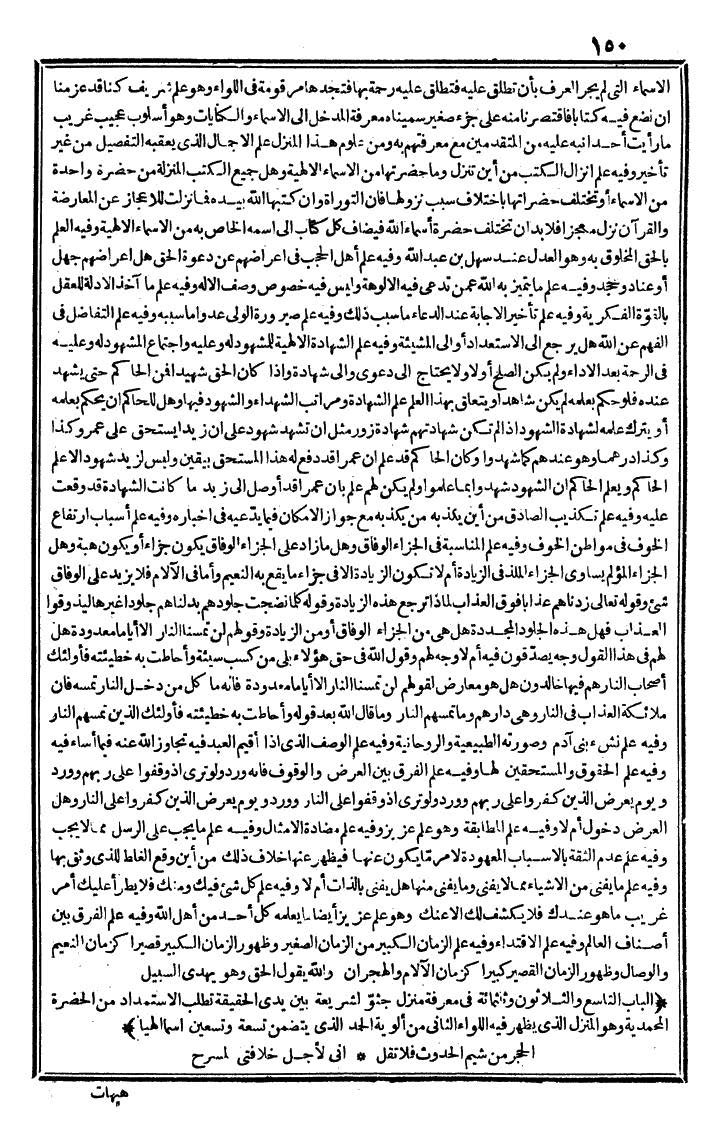 ١٥٠
الاسماء التى لم يجر العرف بأن تطلق عليه فتطلق عليه رحمة بها فتجدها مرقومة فى اللواء وهو علم شريف كنا قد عزمنا
ان نضع فيه كتابا فاقتصرنا منه على جزء صغير سميناه معرفة المدخل الى الاسماء والكنايات وهو أسلوب عجيب غريب
ما رأيت أحدا نبه عليه من المتقدمين مع معرفتهم به ومن علوم هذا المنزل علم الاجمال الذى يعقبه التفصيل من غير
تأخير وفيه علم انزال الكتب من أين تنزل وما حضرتها من الاسماء الالهية وهل جميع الكتب المنزلة من حضرة واحدة
من الاسماء أو تختلف حضراتها باختلاف سبب نزولها فان التوراة وان كتبها الله بيده فما نزلت للاعجاز عن المعارضة
والقرآن نزل معجزا فلابد ان تختلف حضرة أسماء الله فيضاف كل كتاب الى اسمه الخاص به من الاسماء الالهية وفيه العلم
بالحق المخلوق به وهو العدل عند سهل بن عبد الله وفيه علم أهل الحجب فى اعراضهم عن دعوة الحق هل اعراضهم جهل
أو عناد وجحد وفيه علم ما يتميز به الله عمن تدعى فيه الالوهة وليس فيه خصوص وصف الاله وفيه علم ما آخذ الادلة للعقل
بالقوّة الفكرية وفيه علم تأخير الاجابة عند الدعاء ما سبب ذلك وفيه علم صيرورة الولى عدوا ما سببه وفيه علم التفاضل فى
الفهم عن الله هل يرجع الى الاستعداد أو الى المشيئة وفيه علم الشهادة الالهية للمشهود له وعليه واجتماع المشهود له وعليه
فى الرحمة بعد الاداء ولم يكن الصلح أولا ولا يحتاج الى دعوى والى شهادة واذا كان الحق شهيدا فمن الحاكم حتى يشهد
عنده فلو حكم بعلمه لم يكن شاهدا ويتعلق بهذا العلم علم الشهادة ومراتب الشهداء والشهود فيها وهل للحاكم ان يحكم بعلمه
أو يترك علمه لشهادة الشهود اذا لم تكن شهادتهم شهادة زور مثل ان تشهد شهود على ان زيدا يستحق على عمرو كذا
وكذا درهما وهو عندهم كما شهدوا وكان الحاكم قد علم ان عمرا قد دفع له هذا المستحق بيقين وليس لزيد شهود الا علم
الحاكم ويعلم الحاكم ان الشهود شهدوا بما علموا ولم يكن لهم علم بان عمرا قد أوصل الى زيد ما كانت الشهادة قد وقعت
عليه وفيه علم تكذيب الصادق من أين يكذبه من يكذبه مع جواز الامكان فيما يدّعيه فى اخباره وفيه علم أسباب ارتفاع
الخوف فى مواطن الخوف وفيه علم المناسبة فى الجزاء الوفاق وهل ما زاد على الجزاء الوفاق يكون جزاء أو يكون هبة وهل
الجزاء المؤلم يساوى الجزاء الملذ فى الزيادة أم لا تكون الزيادة الا فى جزاء ما يقع به النعيم وأما فى الآلام فلا يزيد على الوفاق
شئ وقوله تعالى زدناهم عذابا فوق العذاب لماذا ترجع هذه الزيادة وقوله كلما نضجت جلودهم بدلناهم جلودا غيرها ليذوقوا
العذاب فهل هذه الجلود المجددة هل هى من الجزاء الوفاق أو من الزيادة وقولهم لن تمسنا النار الا أياما معدودة هل
لهم فى هذا القول وجه يصدّقون فيه أم لا وجه لهم وقول الله فى حق هؤلاء بلى من كسب سيئة وأحاطت به خطيئته فأولئك
أصحاب النار هم فيها خالدون هل هو معارض لقولهم لن تمسنا النار الا أياما معدودة فانه ما كل من دخل النار تمسه فان
ملائكة العذاب فى النار وهى دارهم وما تمسهم النار وما قال الله بعد قوله وأحاطت به خطيئته فأولئك الذين تمسهم النار
وفيه علم نشء بنى آدم وصورته الطبيعية والروحانية وفيه علم الوصف الذى اذا أقيم العبد فيه تجاوز الله عنه فيما أساء فيه
وفيه علم الحقوق والمستحقين لها وفيه علم الفرق بين العرض والوقوف فانه ورد ولو ترى اذ وقفوا على ربهم وورد
ويوم يعرض الذين كفروا على ربهم وورد ولو ترى اذ وقفوا على النار وورد ويوم يعرض الذين كفروا على النار وهل
العرض دخول أم لا وفيه علم المطابقة وهو علم عزيز وفيه علم مضادة الامثال وفيه علم ما يجب على الرسل مما لا يجب
وفيه علم عدم الثقة بالاسباب المعهودة لامر مّا يكون عنها فيظهر عنها خلاف ذلك من أين وقع الغلط للذى وثق بها
وفيه علم ما يفنى من الاشياء مما لا يفنى وما يفنى منها هل يفنى بالذات أم لا وفيه علم كل شئ فيك ومنك فلا يطرأ عليك أمر
غريب ما هو عندك فلا يكشف لك الا عنك وهو علم عزيز أيضا ما يعلمه كل أحد من أهل الله وفيه علم الفرق بين
أصناف العالم وفيه علم الاقتداء وفيه علم الزمان الكبير من الزمان الصغير وظهور الزمان الكبير قصيرا كزمان النعيم
والوصال وظهور الزمان القصير كبيرا كزمان الآلام والهجران والله يقول الحق وهو يهدى السبيل
﴿الباب التاسع والثلاثون وثلثمائة فى معرفة منزل جثوّ الشريعة بين يدى الحقيقة تطلب الاستمداد من الحضرة
المحمدية وهو المنزل الذى يظهر فيه اللواء الثانى من ألوية الحمد الذى يتضمن تسعة وتسعين اسما الهيا﴾
الحجر من شيم الحدوث فلا تقل * انى لأجل خلافتى لمسرح
هيهات